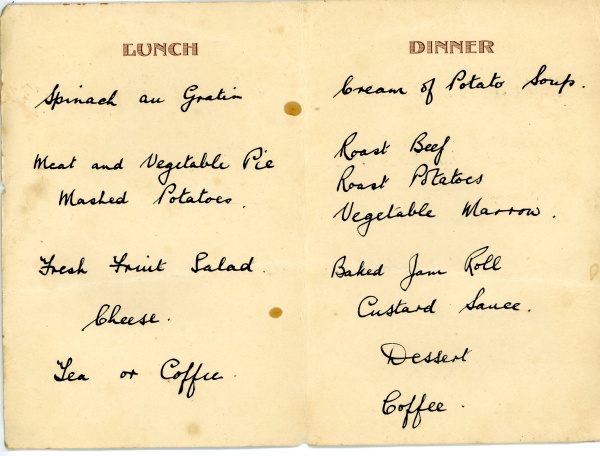 LUNCH
Spinach au Gratin
Meat and Vegetable Pie
Mashed Potatoes.
Fresh Fruit Salad.
Cheese.
Tea or Coffee.
DINNER
Cream of Potato Soup.
Roast Beef
Roast Potatoes
Vegetable Marrow.
Baked Jam Roll
Custard Sauce.
Dessert
Coffee.